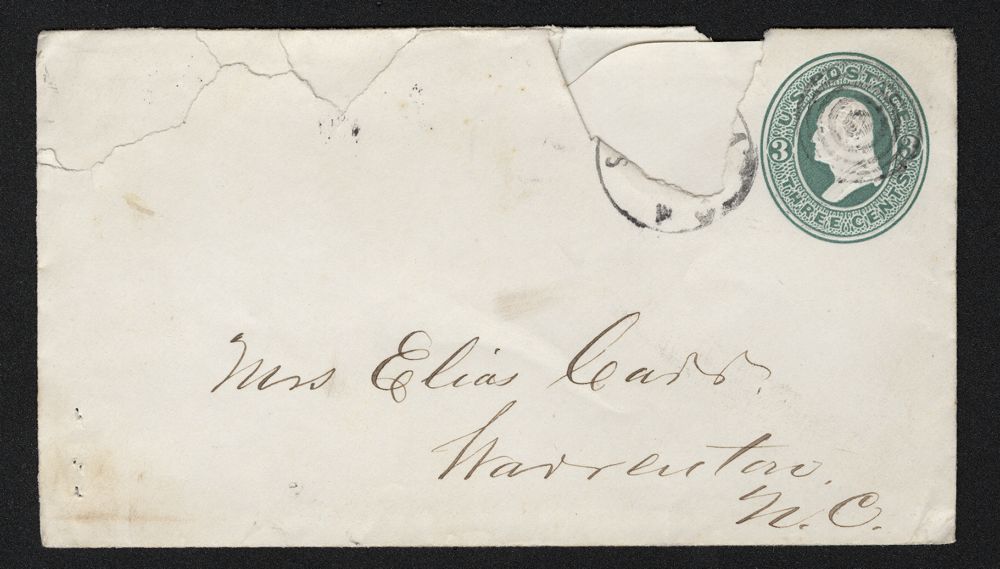 U.S. POSTAGE
3 3
THREE CENTS
Mrs Elias Carr.
Warrenton.
N.C.